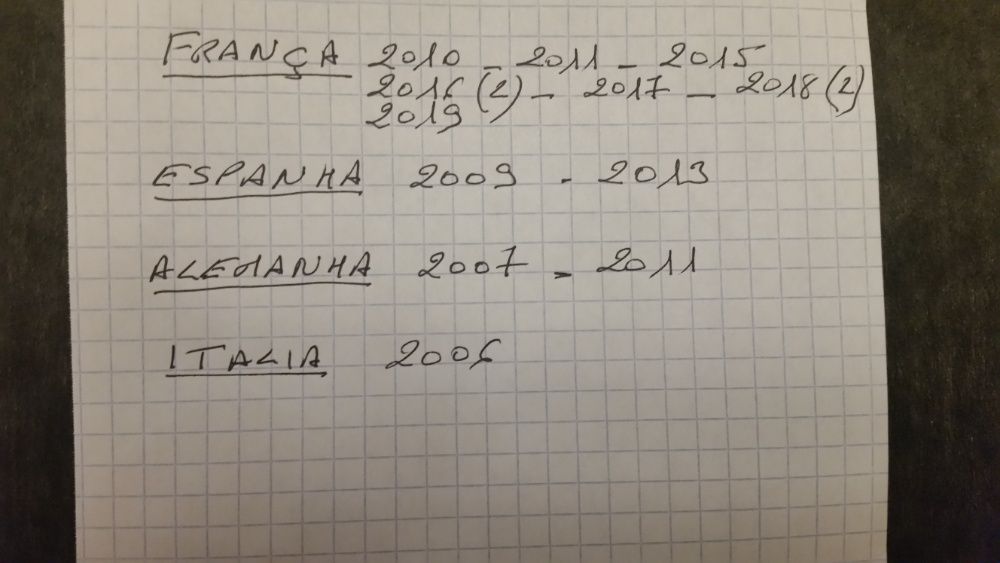 FRANÇA 2010 - 2011 - 2015
2016 (2) - 2017 - 2018 (2)
2019
ESPANHA 2009 - 2013
ALEMANHA 2007 - 2011
ITALIA 2006